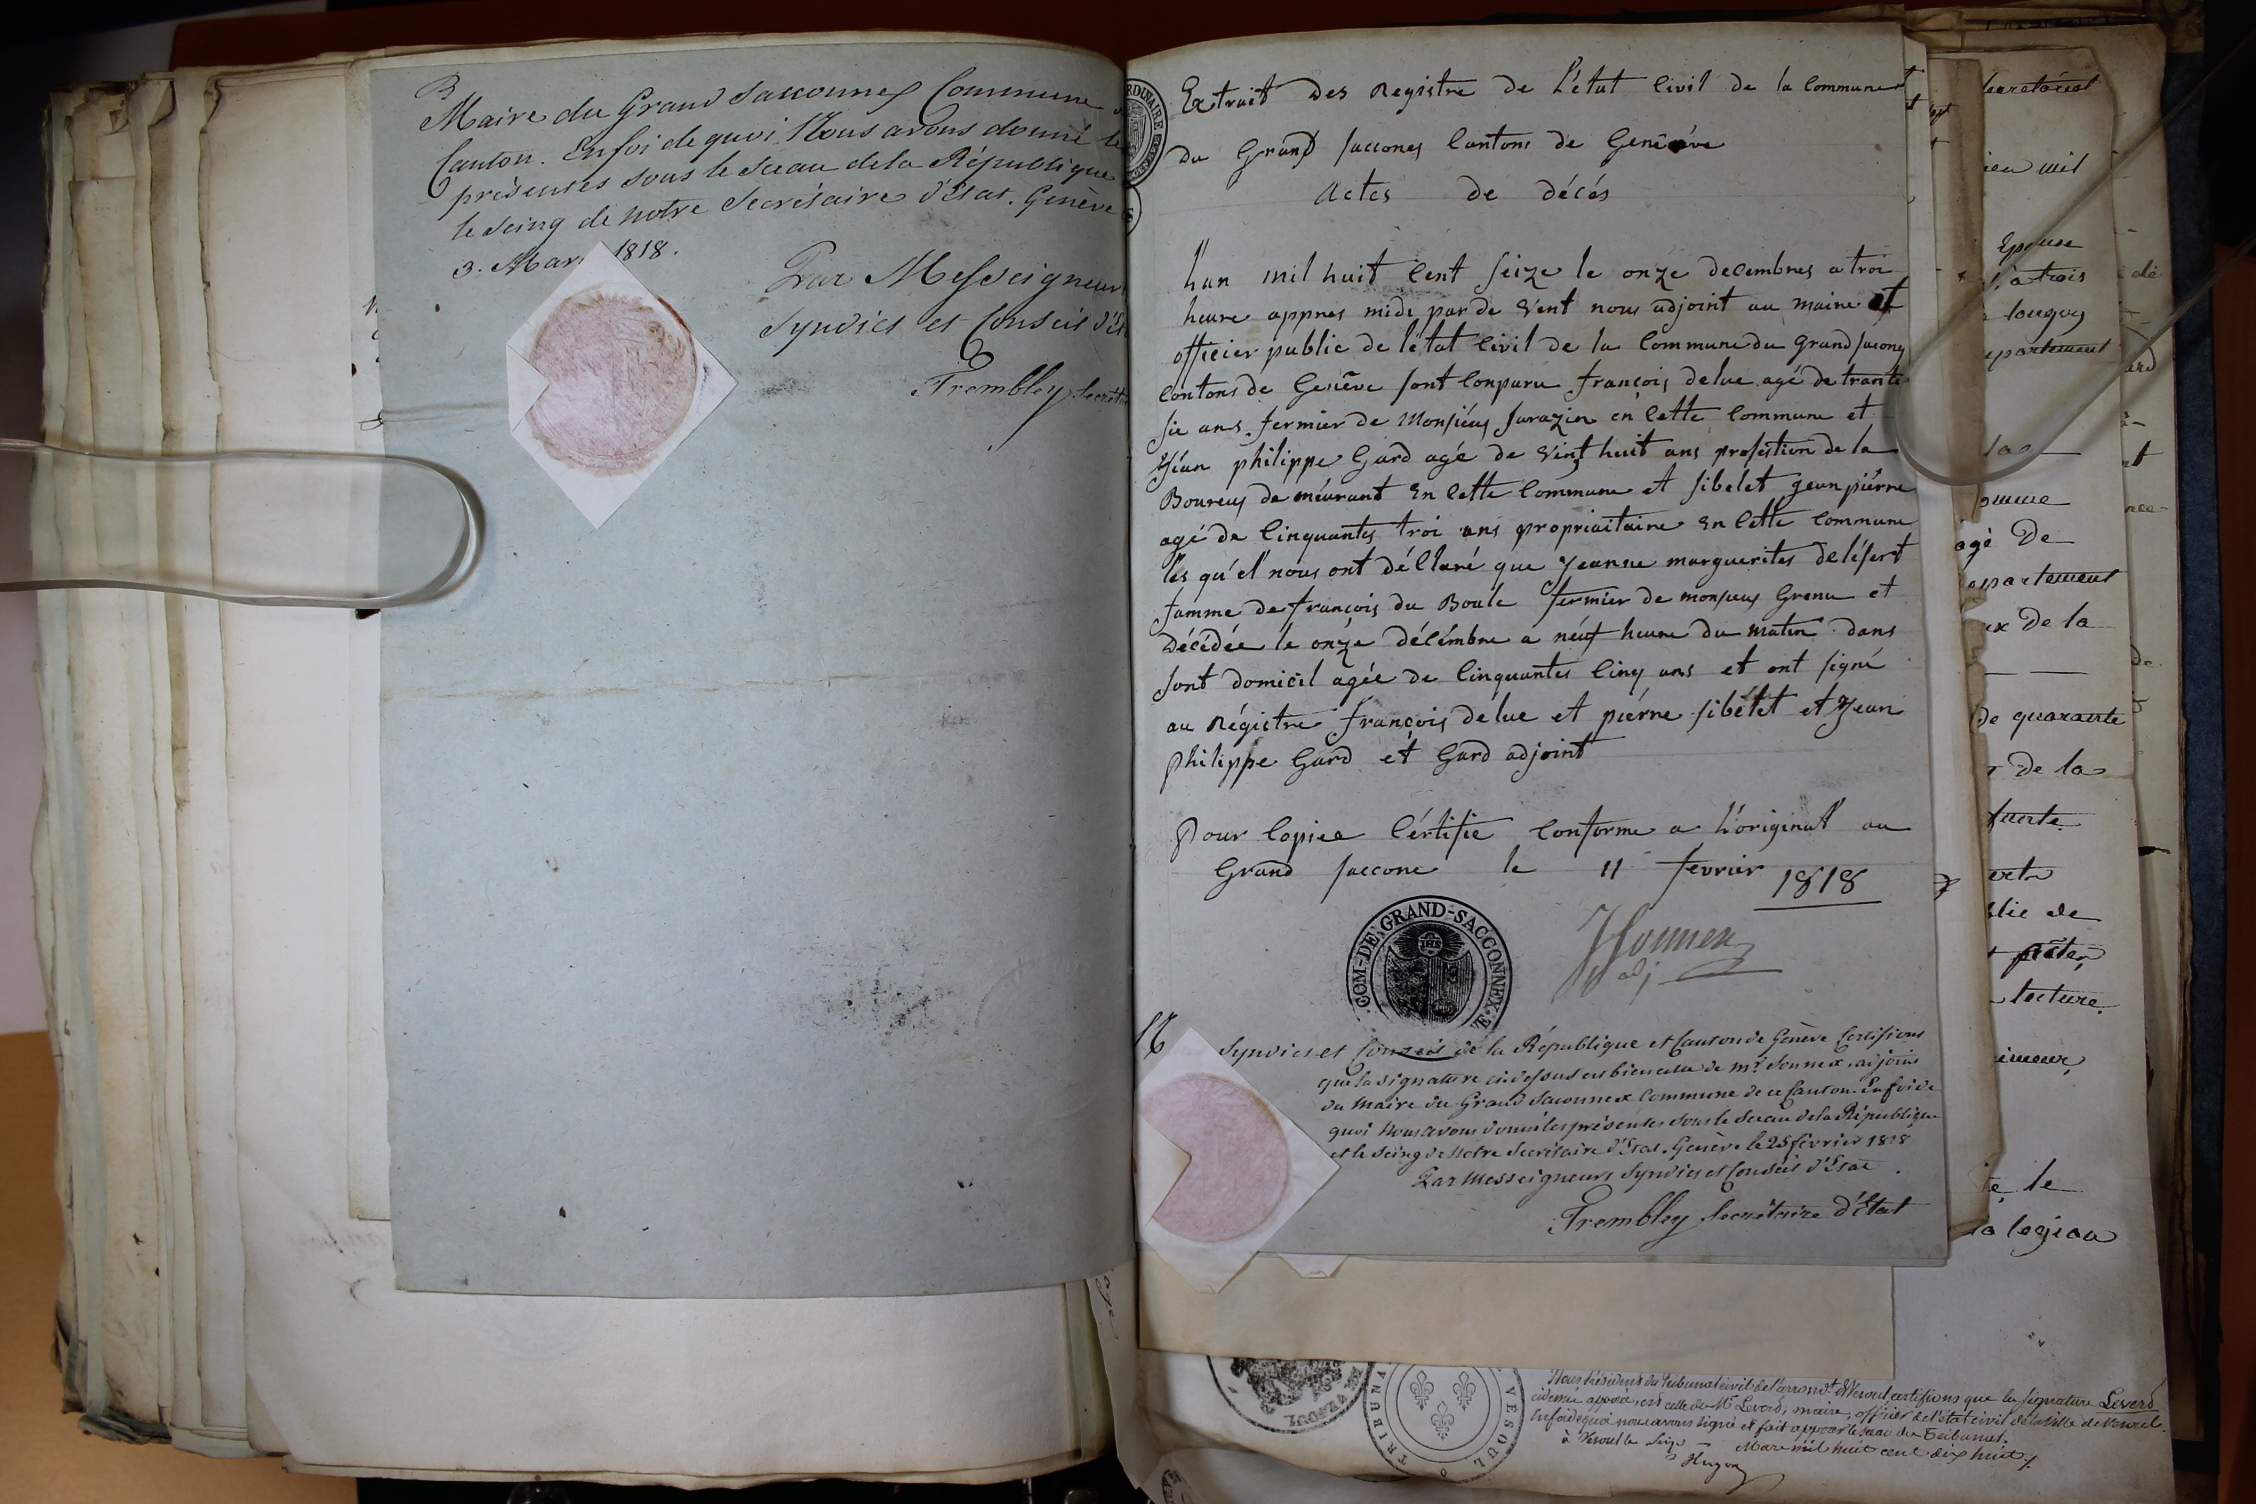 Maire du Grand Sacconnex Commune
Canton. En foi de quoi Nous avons donné les
présentes sous le Sceau de la République
le Seing de notre Secrétaire d'Etat. Genève
3. Mars 1818.
Par Messeigneurs
Syndics et Conseil d'Et
Trembley Secrét
Extrait Des Registre de L'état Civil de la Commune
du Grand Sacconex Cantons de Genêve
Actes de décés
L'an mil huit Cent Seize le onze decembres a troi
heure appres midi par de vent nous adjoint au maire et
officier public de l'état Civil de la Commune du grand Sacong
Contons de Genêve Sont Conparu françois deluc agé de trante
Sie ans fermier de Monsieus Sarazin en Cette Commune et
Jéan philippe Gard agé de vint huit ans profestion de la
Boureus de méurant En Cette Commune et Sibelet Jean piérre
agé de Cinquantes troi ans propriaitaire En Cette Commune
les qu'el nous ont déClaré que Jeanne marguerites delésert
famme de françois du Boule fermier de monsieus Grenu et
Décédée le onze décémbre a néuf heure du matin dans
Sont domicil agée de Cinquantes Cinq ans et ont Signé
au Régistre françois déluc et piérre Sibélet et Jean
philippe Gard et Gard adjoint
Pour Copiee Cértifie Conforme a L'original au
Grand Saccone le 11 fevrier 1818
COM-DE GRAND-SACCONNEX
IHS
adj
Syndics et Conseil de la République et Canton de Genève Certifions
que la signature ci dessus est bien celle de Mr. Jonnex adjoint
du Maire du Grand Saconnex Commune de ce Canton. En foi de
quoi Nous avons donné les présentes sous le Sceau de la République
et le Seing de Notre Secrétaire d'Etat. Genève le 25 février 1818
Par Messeigneurs Syndics et Conseil d'Etat
Trembley Secrétaire d'État
Epouse
à trois
longuy
epartement
agé De
De la
De quarante
De la
lecture
le
Nous Président du Tribunal civil de l'arrond.t de Vesoul certifions que la signature Leverd
ci derrière apposée, est celle de Mr. Leverd, maire, officier de l'état civil de la ville de Vesoul.
En foi de quoi nous avons signé et fait apposer le sceau du Tribunal.
à Vesoul le Seize Mars mil huit cent dix huit
TRIBUNA
VESOUL